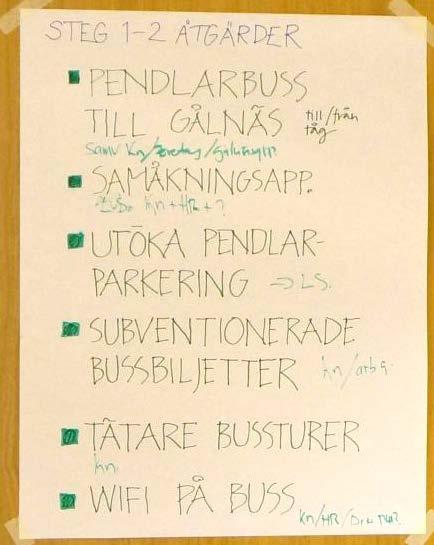 STEG 1-2 ÅTGÄRDER
PENDLARBUSS
TILL GÅLNÄS till/från
tåg
Samv Kn/
SAMÅKNINGSAPP.
kn + HR + ?
UTÖKA PENDLAR-
PARKERING => LS.
SUBVENTIONERADE
BUSSBILJETTER kn/arb g
TÄTARE BUSSTURER
kn.
WIFI PÅ BUSS
kn/HR/